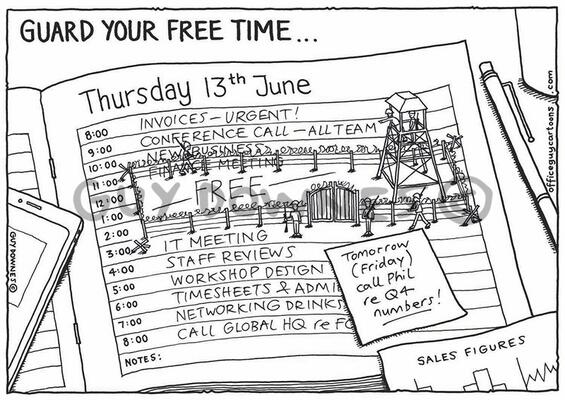 GUARD YOUR FREE TIME...
Thursday 13th June
8:00 INVOICES – URGENT!
9:00 CONFERENCE CALL – ALL TEAM
10:00 NEW BUSINESS
11:00 FINANCE MEETING
12:00
1:00
2:00
3:00 IT MEETING
4:00 STAFF REVIEWS
5:00 WORKSHOP DESIGN
6:00 TIMESHEETS & ADMI
7:00 NETWORKING DRINKS
8:00 CALL GLOBAL HQ re
NOTES:
Tomorrow
(Friday)
call Phil
re Q4
numbers!
SALES FIGURES
GUY DOWNES ©
GUY DOWNES ©
officeguycartoons.com